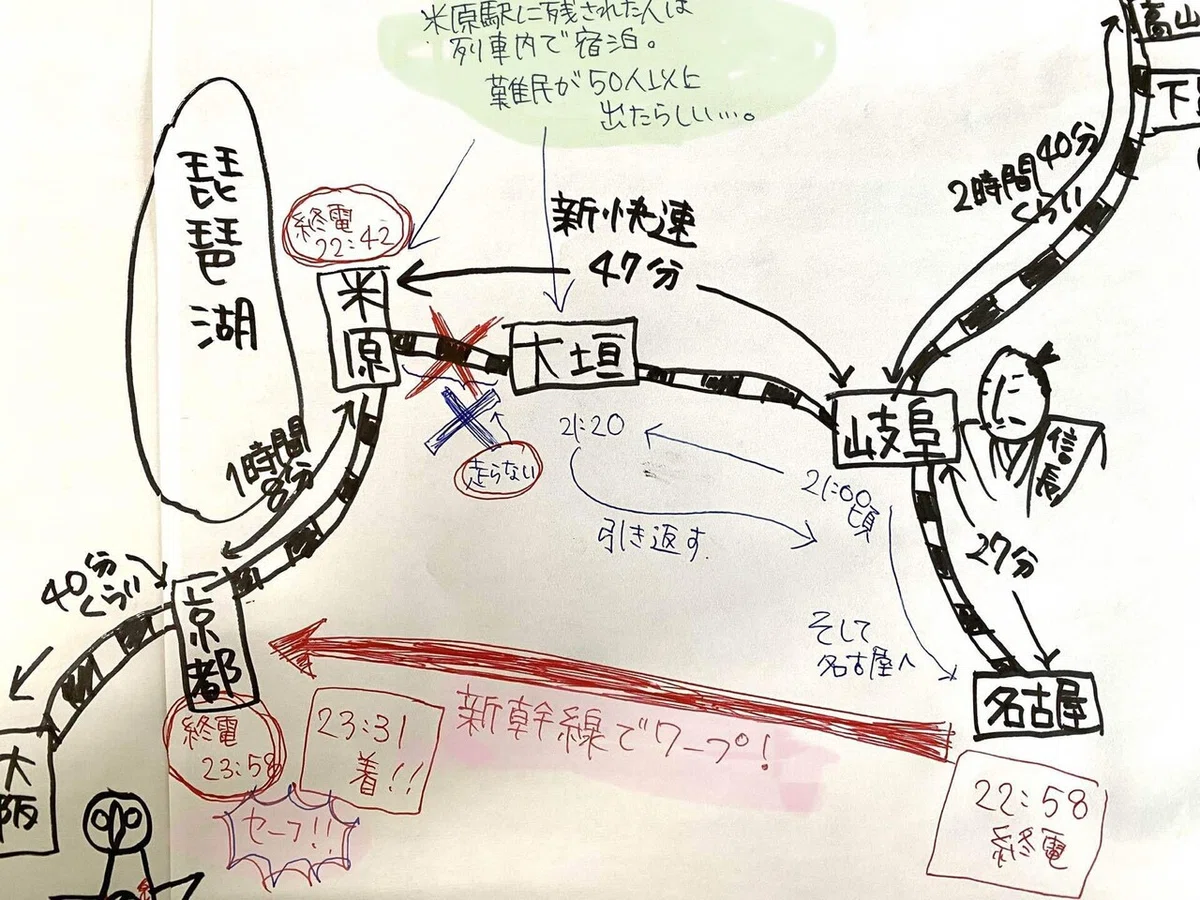 米原駅に残された人は
列車内で宿泊。
難民が50人以上
出たらしい…。
高山
下
2時間40分
くらい
琵琶湖
終電
22:42
新快速
47分
米原
大垣
岐阜
信長
1時間
8分
走らない
21:20
21:00
頃
引き返す
27分
40分
くらい
京都
そして
名古屋へ
名古屋
新幹線でワープ!
終電
23:58
23:31
着!!
セーフ!!
22:58
終電
大阪